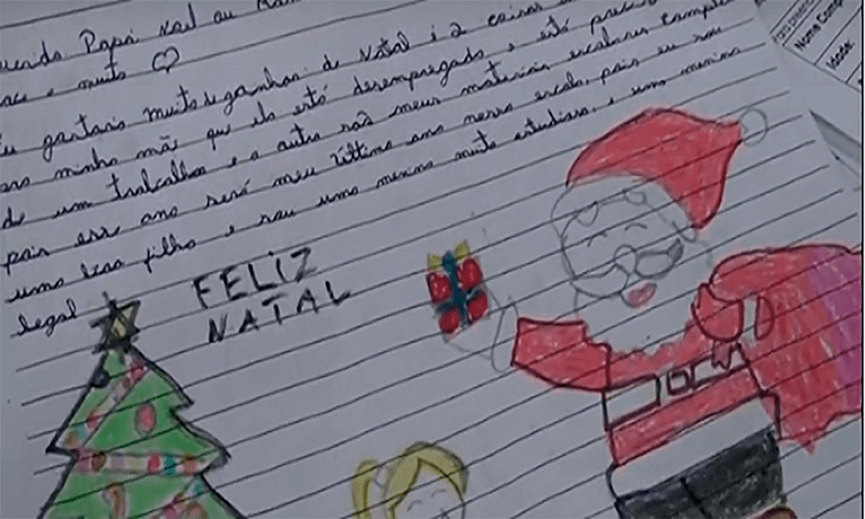 uerido Papai Noel ou
e muito
Eu gostaria muito de ganhar de Natal é 2 coisas
minha mãe que ela está desempregada e está precis
de um trabalho e a outra são meus materiais escolares complet
pois esse ano será meu último ano nessa escola, pois eu sou
uma boa filha e sou uma menina muito estudiosa, e uma menina
legal
FELIZ
NATAL
Nome Comp
Idade: